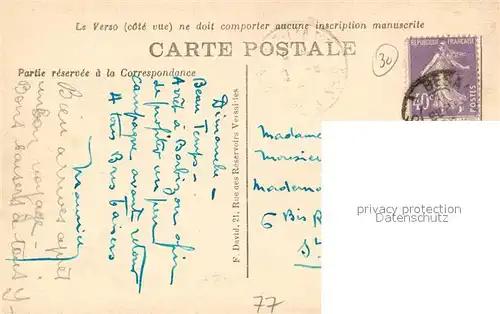 Le Verso (côté vue) ne doit comporter aucune inscription manuscrite
CARTE POSTALE
Partie réservée à la Correspondance
RÉPUBLIQUE FRANÇAISE
40c
POSTES
30
Dimanche -
Beau Temps -
Arrêt à Barbizon afin
de profiter un peu
Campagne avant retour
A tous Bons Baisers
Maurice
Bien arrivés après
un bon voyage -
Bons baisers à tous
F. David, 21, Rue des Réservoirs Versailles
Madame
Monsieur
Mademo
6 Bis R
St
77
privacy protection
Datenschutz